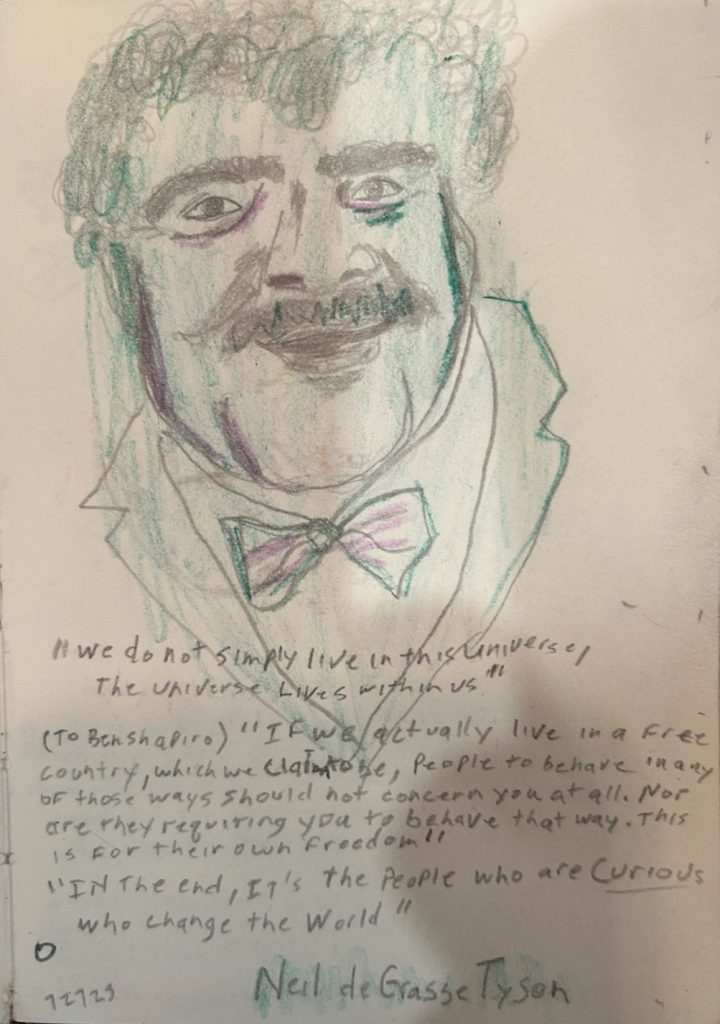 "we do not simply live in this universe,
The universe Lives within us"
(To Ben Shapiro) "If we actually live in a free
country, which we claim to be, People to behave in any
of those ways should not concern you at all. Nor
are they requiring you to behave that way. This
is for their own freedom"
"IN The end, It's the People who are Curious
who change the World"
Neil de Grasse Tyson